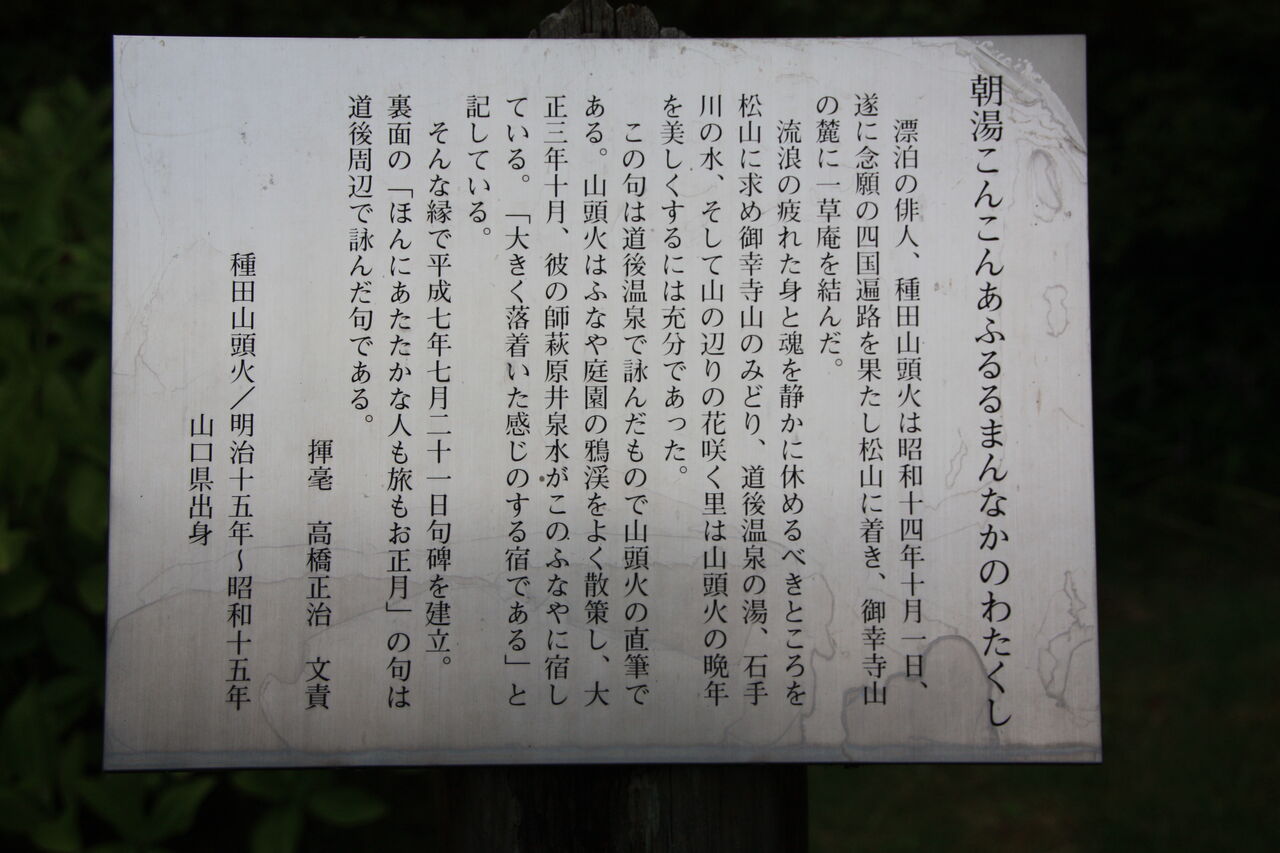 朝湯こんこんあふるるまんなかのわたくし
漂泊の俳人、種田山頭火は昭和十四年十月一日、
遂に念願の四国遍路を果たし松山に着き、御幸寺山
の麓に一草庵を結んだ。
流浪の疲れた身と魂を静かに休めるべきところを
松山に求め御幸寺山のみどり、道後温泉の湯、石手
川の水、そして山の辺りの花咲く里は山頭火の晩年
を美しくするには充分であった。
この句は道後温泉で詠んだもので山頭火の直筆で
ある。山頭火はふなや庭園の鴉渓をよく散策し、大
正三年十月、彼の師萩原井泉水がこのふなやに宿し
ている。「大きく落着いた感じのする宿である」と
記している。
そんな縁で平成七年七月二十一日句碑を建立。
裏面の「ほんにあたたかな人も旅もお正月」の句は
道後周辺で詠んだ句である。
揮毫　高橋正治　文責
種田山頭火／明治十五年～昭和十五年
山口県出身